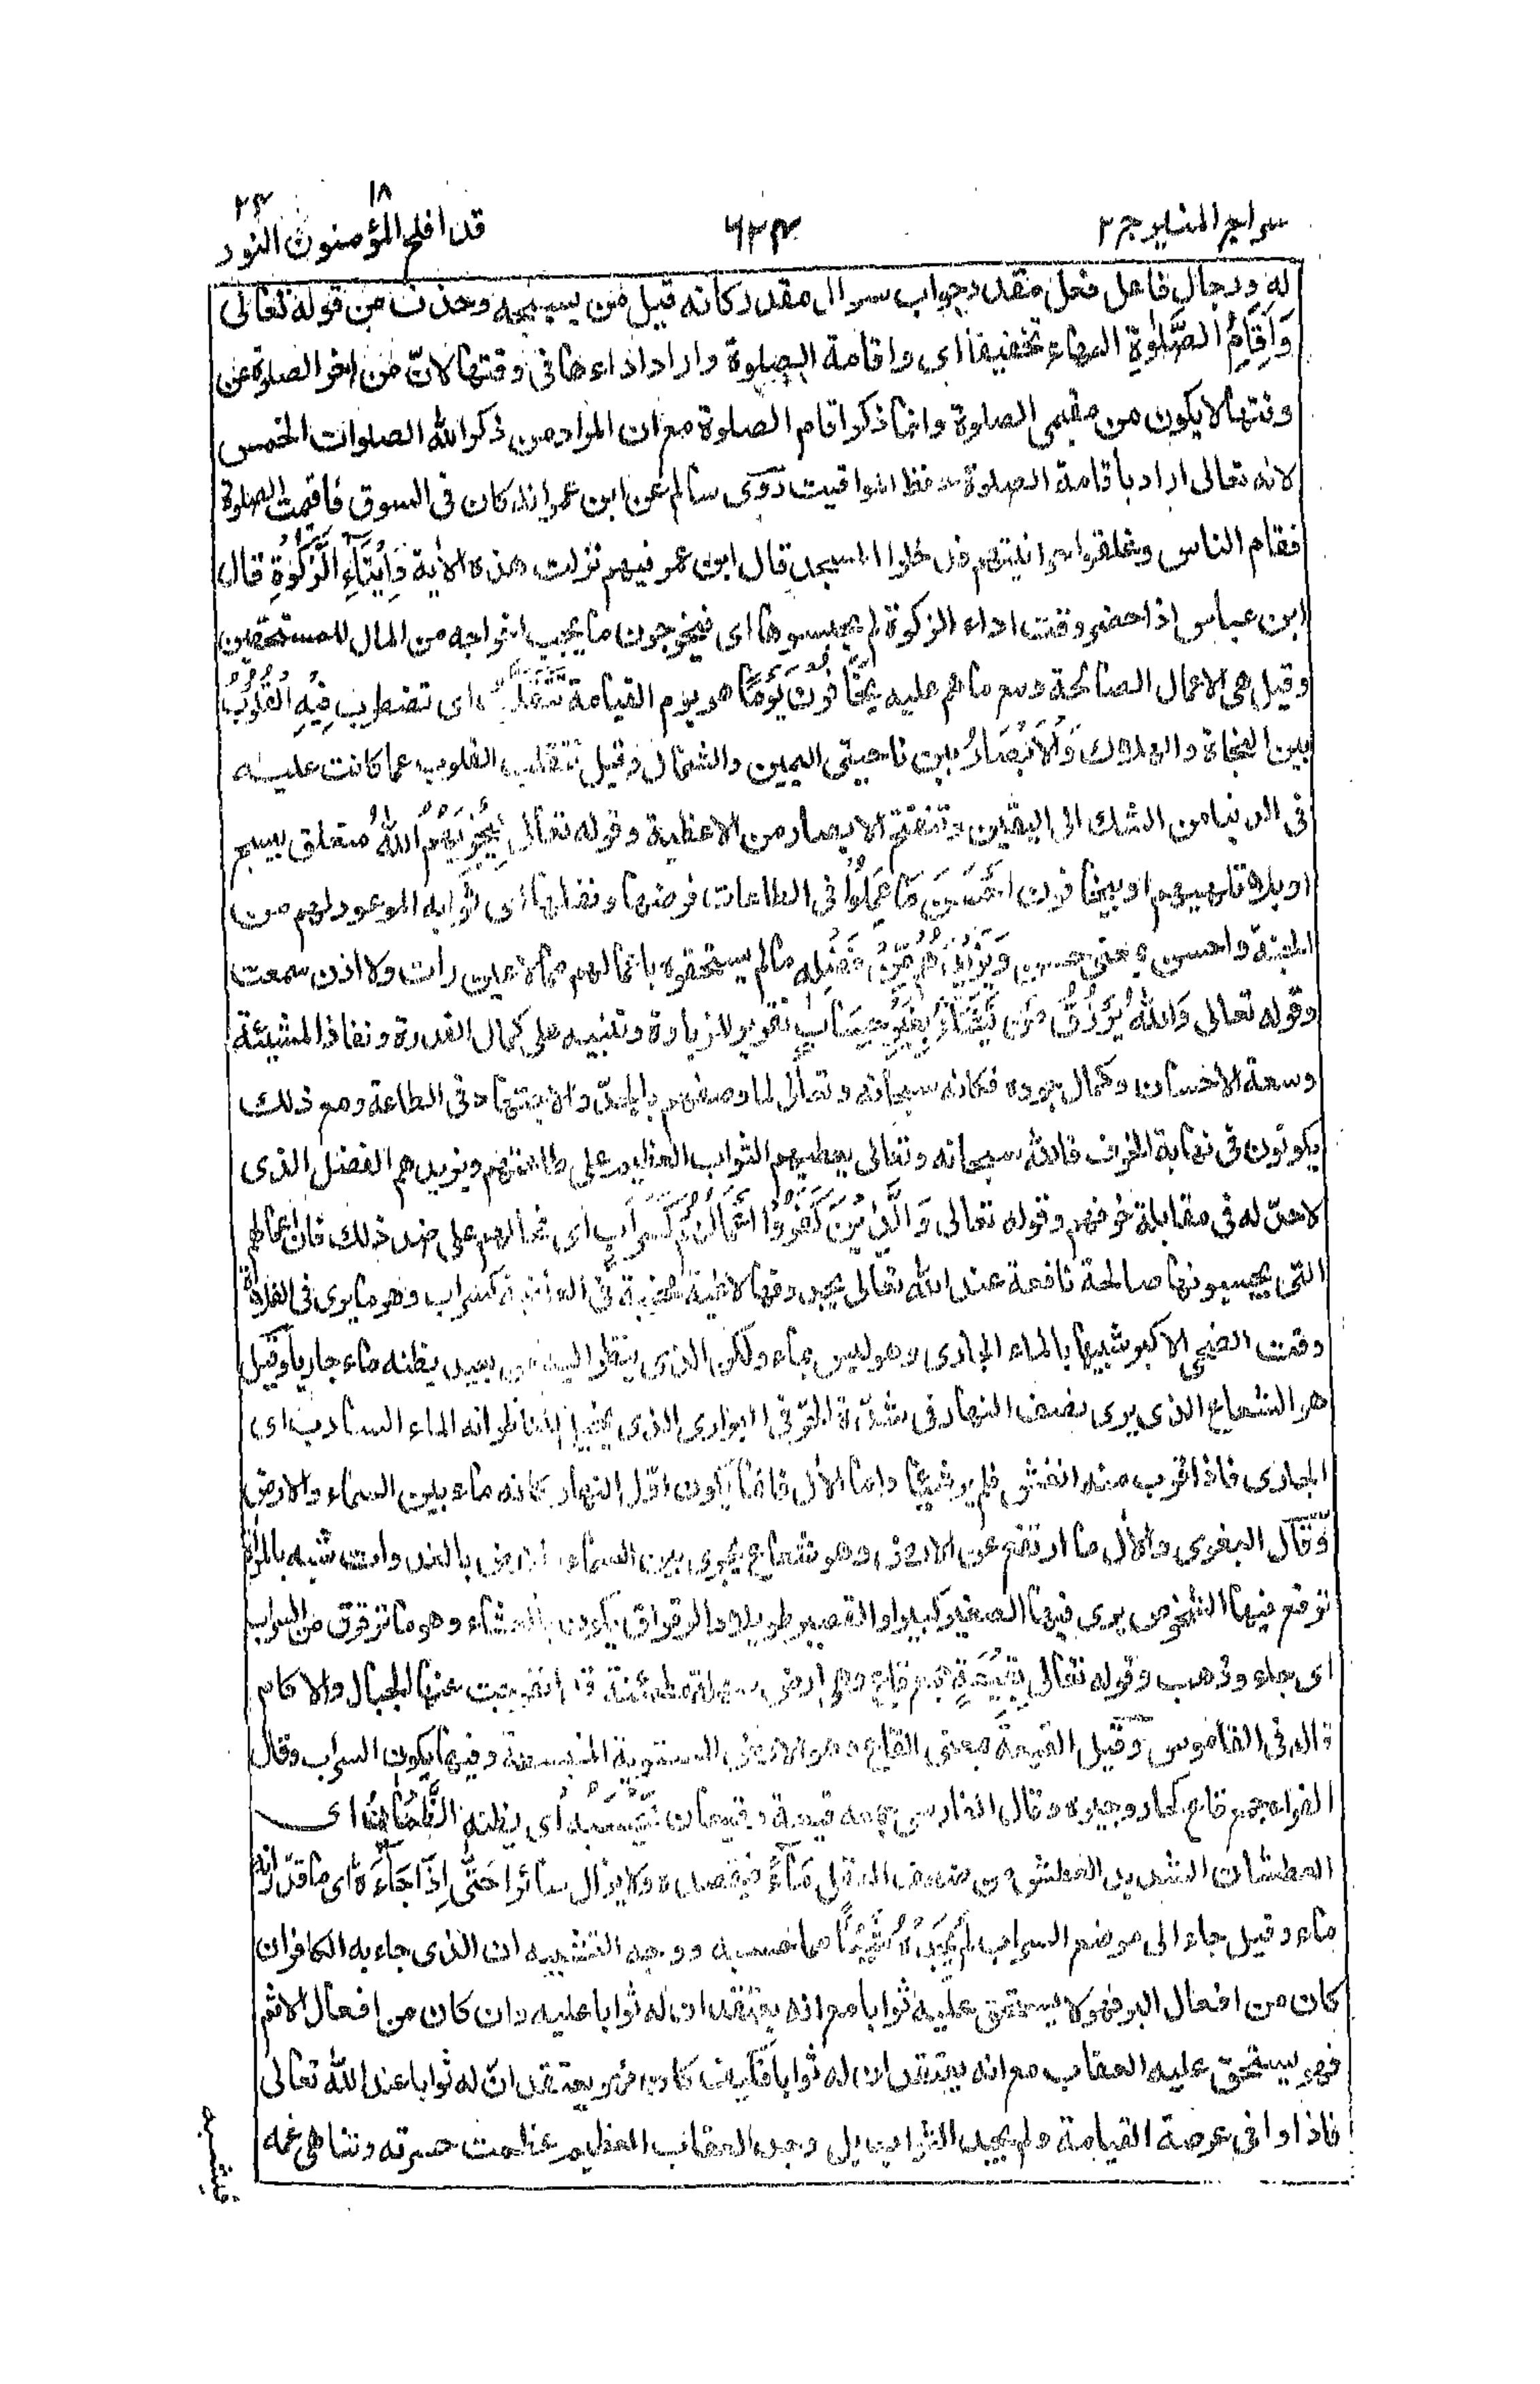 سراج المنير ج ٣
٦٢٤
١٨
قد افلح المؤمنون النور
٢٤
له ورجال فاعل فعل مقدر جواب سوال مقدر كانه قيل من يسبحه وحذفت من قوله تعالى
وَاِقَامِ الصَّلٰوةِ الهاء تخفيفا اى واقامة الصلوة واراد اداءها فى وقتها لانّ من اخر الصلوة عن
وقتها لا يكون من مقيمى الصلوة وانما ذكر اقام الصلوة مع ان المراد من ذكر الله الصلوات الخمس
لانه تعالى اراد باقامة الصلوة حفظ المواقيت روى سالم عن ابن عمر انه كان فى السوق فاقيمت الصلوة
فقام الناس وغلقوا حوانيتهم فدخلوا المسجد قال ابن عمر فيهم نزلت هذه الأية وَاِيْتَآءِ الزَّكٰوةِ قال
ابن عباس اذا حضر وقت اداء الزكوة لم يحبسوها اى فيخرجون ما يجب اخراجه من المال للمستحقين
وقيل هى الاعمال الصالحة ومع ما هم عليه يَخَافُوْنَ يَوْمًا هو يوم القيامة تَتَقَلَّبُ اى تضطرب فِيْهِ الْقُلُوْبُ
بين النجاة والهلاك وَالْاَبْصَارُ بين ناحيتى اليمين والشمال وقيل تتقلب القلوب عما كانت عليه
فى الدنيا من الشك الى اليقين وتنفتح الابصار من الاغطية وقوله تعالى لِيَجْزِيَهُمُ اللهُ متعلق بيسبح
او بلا تلهيهم او بيخافون اَحْسَنَ مَا عَمِلُوْا فى الطاعات فرضها ونفلها اى ثوابه الموعود لهم من
الجنة واحسن بمعنى حسن وَيَزِيْدَهُمْ مِّنْ فَضْلِهٖ ما لم يستحقوه باعمالهم مما لا عين رات ولا اذن سمعت
وقوله تعالى وَاللهُ يَرْزُقُ مَنْ يَّشَآءُ بِغَيْرِ حِسَابٍ تقرير للزيادة وتنبيه على كمال القدرة ونفاذ المشيئة
وسعة الاحسان وكمال جوده فكانه سبحانه وتعالى لما وصفهم بالجدّ والاجتهاد فى الطاعة ومع ذلك
يكونون فى نهاية الخوف فالله سبحانه وتعالى يعطيهم الثواب العظيم على طاعتهم ويزيدهم الفضل الذى
لا حدّ له فى مقابلة خوفهم وقوله تعالى وَالَّذِيْنَ كَفَرُوْا اَعْمَالُهُمْ كَسَرَابٍ اى حالهم على ضد ذلك فان اعمالهم
التى يحسبونها صالحة نافعة عند الله تعالى يجدونها لاغية مخيبة فى العاقبة كسراب وهو ما يرى فى الفلاة
وقت الضحى الاكبر شبيها بالماء الجارى وهو ليس بماء ولكن الذى ينظر اليه من بعيد يظنه ماء جاريا وقيل
هو الشعاع الذى يرى نصف النهار فى شدّة الحرّ فى البرارى الذى يخيل للناظر انه الماء السارب اى
الجارى فاذا قرب منه انفش فلم ير شيئا واما الأل فانما يكون اوّل النهار كانه ماء بين السماء والارض
وقال البغوى والأل ما ارتفع عن الارض وهو شعاع يجرى بين السماء والارض بالغدوات شبه بالمراة
ترفع فيها الشخوص يرى فيها الصغير كبيرا والقصير طويلا والرقراق يكون بالعشاء وهو ما ترقرق من السراب
اى جاء وذهب وقوله تعالى بِقِيْعَةٍ جمع قاع وهو ارض سهلة مطمئنة قد انفرجت عنها الجبال والاكام
قاله فى القاموس وقيل القيعة بمعنى القاع وهو الارض المستوية المنبسطة وفيها يكون السراب وقال
الفراء جمع قاع كجار وجيرة وقال الفارسى جمعه قيعة وقيعان يَّحْسَبُهُ اى يظنه الظَّمْاٰنُ اى
العطشان الشديد العطش من ضعف العقل مَآءً فيقصده ولا يزال سائرا حَتّٰى اِذَا جَآءَهٗ اى ما قدّر انه
ماء وقيل جاء الى موضع السراب لَمْ يَجِدْهُ شَيْئًا مما حسبه ووجه التشبيه ان الذى جاء به الكافر ان
كان من افعال البر فهو لا يستحق عليه ثوابا مع انه يعتقد ان له ثوابا عليه وان كان من افعال الاثم
فهو يستحق عليه العقاب مع انه يعتقد ان له ثوابا فكيف كان فهو يعتقد ان له ثوابا عند الله تعالى
فاذا وافى عرصة القيامة ولم يجد الثواب بل وجد العقاب العظيم عظمت حسرته وتناهى غمه
فيشبه